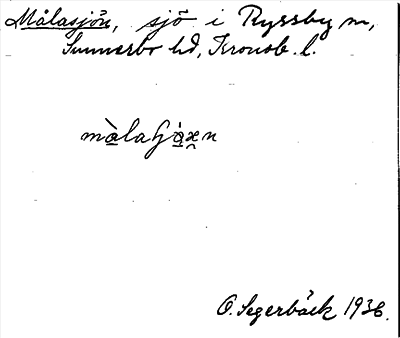 Målasjön, sjö i Ryssby sn,
Sunnerbo hd, Kronob. l.
O. Segerbäck 1936.